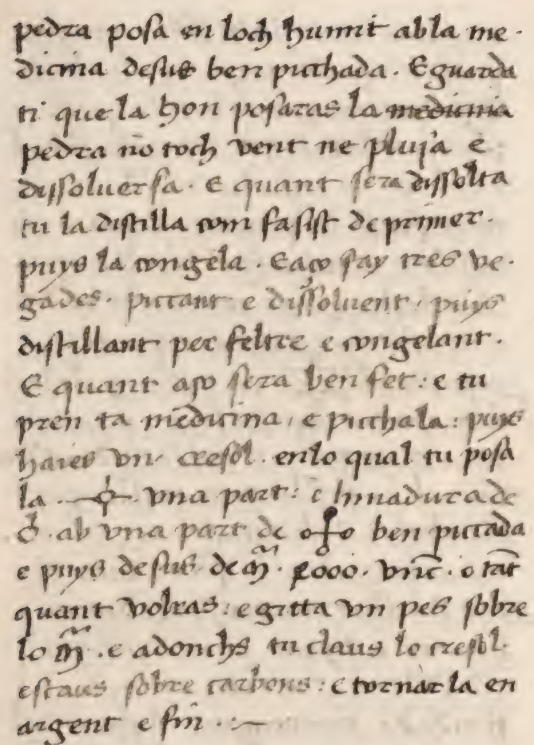 pedra posa en loch humit abla me·
dicina desus ben picchada · E guarda
ti que la hon posaras la medicinia
pedra no toch vent ne pluja e
dissoluersa · E quant sera dissolta
tu la distilla com fasist de primer ·
puys la congela · E aço fay tres ve·
gades · piccant e dissoluent · puys
distillant per feltre e congelant ·
E quant aço sera ben fet : e tu
pren ta medicina , e picchala : puys
haies vn cresol · en lo qual tu posa
la · vna part : e limadura de
ab vna part de ben piccada
e puys desus de m̃ · vnc̃ · o tãt
quant volras : e gitta vn pes sobre
lo m̃ · e adonchs tu claus lo cresol ·
estaus sobre carbons : e tornar la en
argent e fin ·